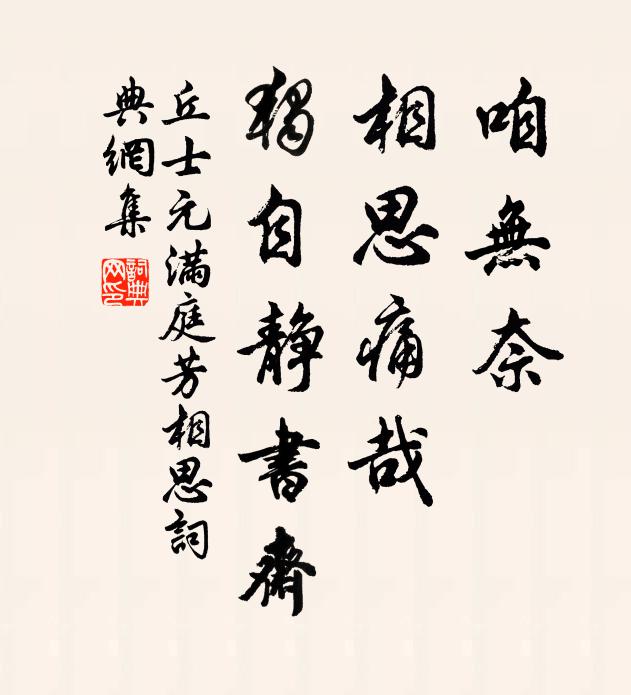 咱無奈
相思痛哉
獨自靜書齋
丘士元滿庭芳相思詞
典網集
詞典網印